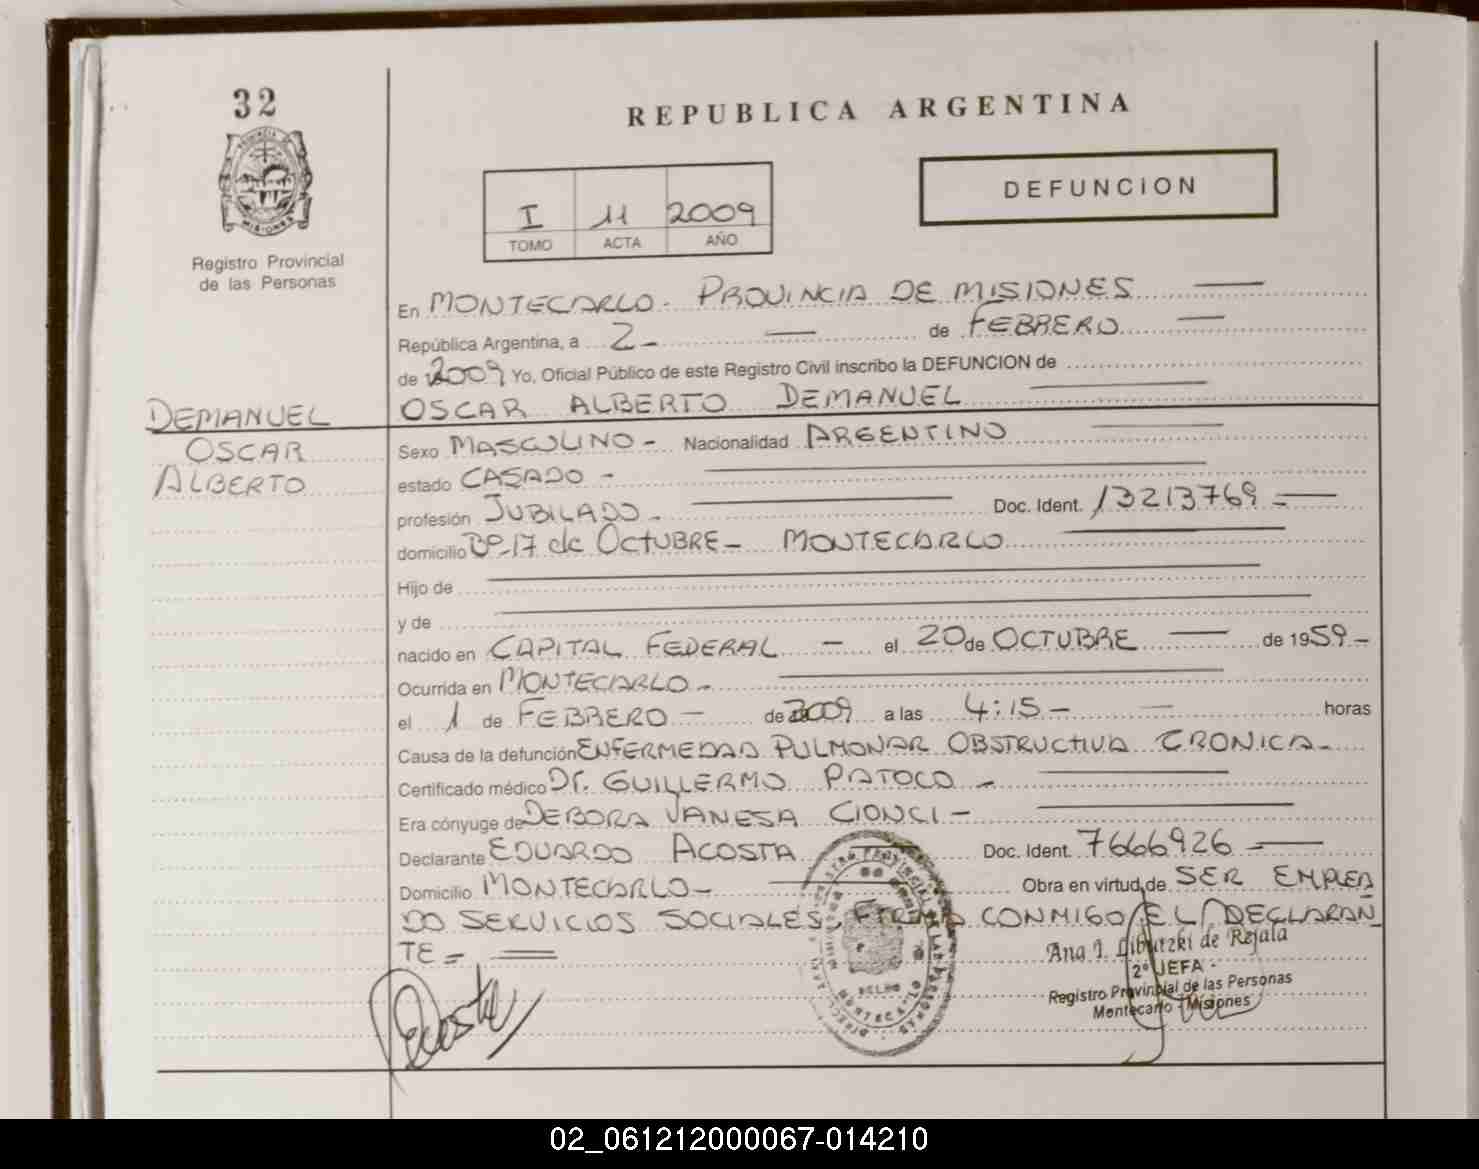 32
REPUBLICA ARGENTINA
PROVINCIA DE
MISIONES
Registro Provincial
de las Personas
I 11 2009
TOMO ACTA AÑO
DEFUNCION
En MONTECARLO - PROVINCIA DE MISIONES
República Argentina, a 2 - de FEBRERO
de 2009 Yo, Oficial Público de este Registro Civil inscribo la DEFUNCION de
DEMANUEL
OSCAR
ALBERTO
OSCAR ALBERTO DEMANUEL
Sexo MASCULINO - Nacionalidad ARGENTINO
estado CASADO -
profesión JUBILADO - Doc. Ident. 13213769 -
domicilio Bº-17 de OCTUBRE - MONTECARLO
Hijo de
y de
nacido en CAPITAL FEDERAL - el 20 de OCTUBRE de 1959 -
Ocurrida en MONTECARLO -
el 1 de FEBRERO - de 2009 a las 4:15 - horas
Causa de la defunción ENFERMEDAD PULMONAR OBSTRUCTIVA CRONICA -
Certificado médico Dr. GUILLERMO PATOCO -
Era cónyuge de DEBORA VANESA CIONCI -
Declarante EDUARDO ACOSTA Doc. Ident. 7666926
Domicilio MONTECARLO - Obra en virtud de SER EMPLEA
DO SERVICIOS SOCIALES, FIRMA CONMIGO EL DECLARAN
TE =
Ana I. Libutzki de Rejala
2º JEFA
Registro Provincial de las Personas
Montecarlo - Misiones
EAcosta
02_061212000067-014210